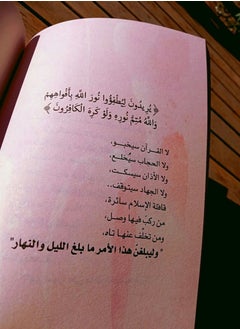 ﴿ يُرِيدُونَ لِيُطْفِؤُوا نُورَ اللَّهِ بِأَفْوَاهِهِمْ
وَاللَّهُ مُتِمُّ نُورِهِ وَلَوْ كَرِهَ الْكَافِرُونَ ﴾
لا القرآن سيخبو،
ولا الحجاب سيُخلع،
ولا الأذان سيسكت،
ولا الجهاد سيتوقف..
قافلة الإسلام سائرة،
من ركب فيها وصل،
ومن تخلّف عنها تاه،
"وليبلغنّ هذا الأمر ما بلغ الليل والنهار"